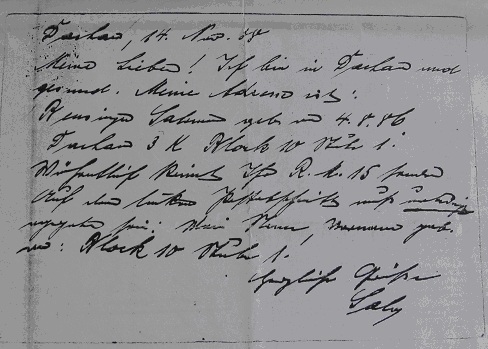 Dachau, 14. Nov. 38
Meine Lieben! Ich bin in Dachau und
gesund. Meine Adresse ist:
geb. 4.8.86
Dachau 3 K Block 10 Stube 1.
Wöchentlich könnt Ihr R. M. 15 senden
Auf dem muß unbedingt
angegeben sein: mein Name, Vorname geb.
Block 10 Stube 1.
Herzliche Grüße
Saly